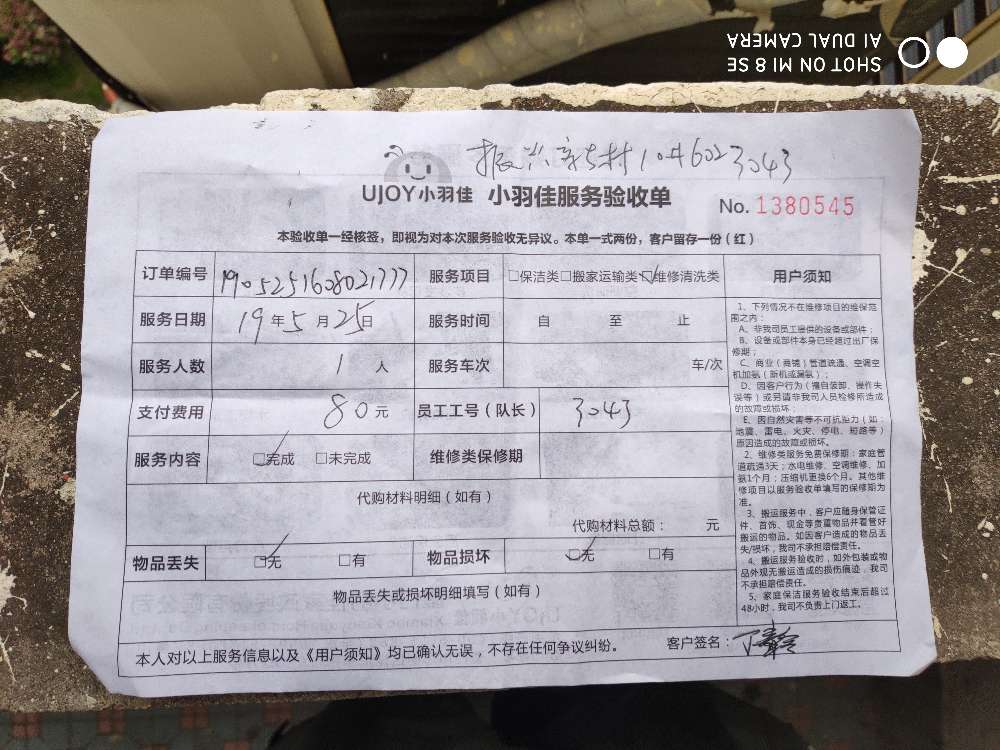 SHOT ON MI 8 SE
AI DUAL CAMERA
振兴新村10#602 3043
UJOY小羽佳 小羽佳服务验收单 No. 1380545
本验收单一经核签，即视为对本次服务验收无异议。本单一式两份，客户留存一份（红）
订单编号 1905251608021777 服务项目 □保洁类□搬家运输类☑维修清洗类 用户须知
服务日期 19年5月25日 服务时间 自 至 止
服务人数 1人 服务车次 车/次
支付费用 80元 员工工号（队长） 3043
服务内容 ☑完成 □未完成 维修类保修期
代购材料明细（如有）
代购材料总额： 元
物品丢失 ☑无 □有 物品损坏 ☑无 □有
物品丢失或损坏明细填写（如有）
1、下列情况不在维修项目的维保范
围之内：
A、非我司员工提供的设备或部件；
B、设备或部件本身已经超过出厂保
修期；
C、商业（商铺）管道疏通、空调空
机加氨（新机或漏氨）；
D、因客户行为（擅自装卸、操作失
误等）或另请非我司人员检修所造成
的故障或损坏；
E、因自然灾害等不可抗拒力（如：
地震、雷电、火灾、停电、短路等）
原因造成的故障或损坏。
2、维修类服务免费保修期：家庭管
道疏通3天；水电维修、空调维修、加
氨1个月；压缩机更换6个月。其他维
修项目以服务验收单填写的保修期为
准。
3、搬运服务中，客户应随身保管证
件、首饰、现金等贵重物品并看管好
搬运的物品。如因客户造成的物品丢
失/损坏，我司不承担赔偿责任。
4、搬运服务验收时，如外包装或物
品外观无搬运造成的损伤痕迹，我司
不承担赔偿责任。
5、家庭保洁服务验收结束后超过
48小时，我司不负责上门返工。
本人对以上服务信息以及《用户须知》均已确认无误，不存在任何争议纠纷。 客户签名：